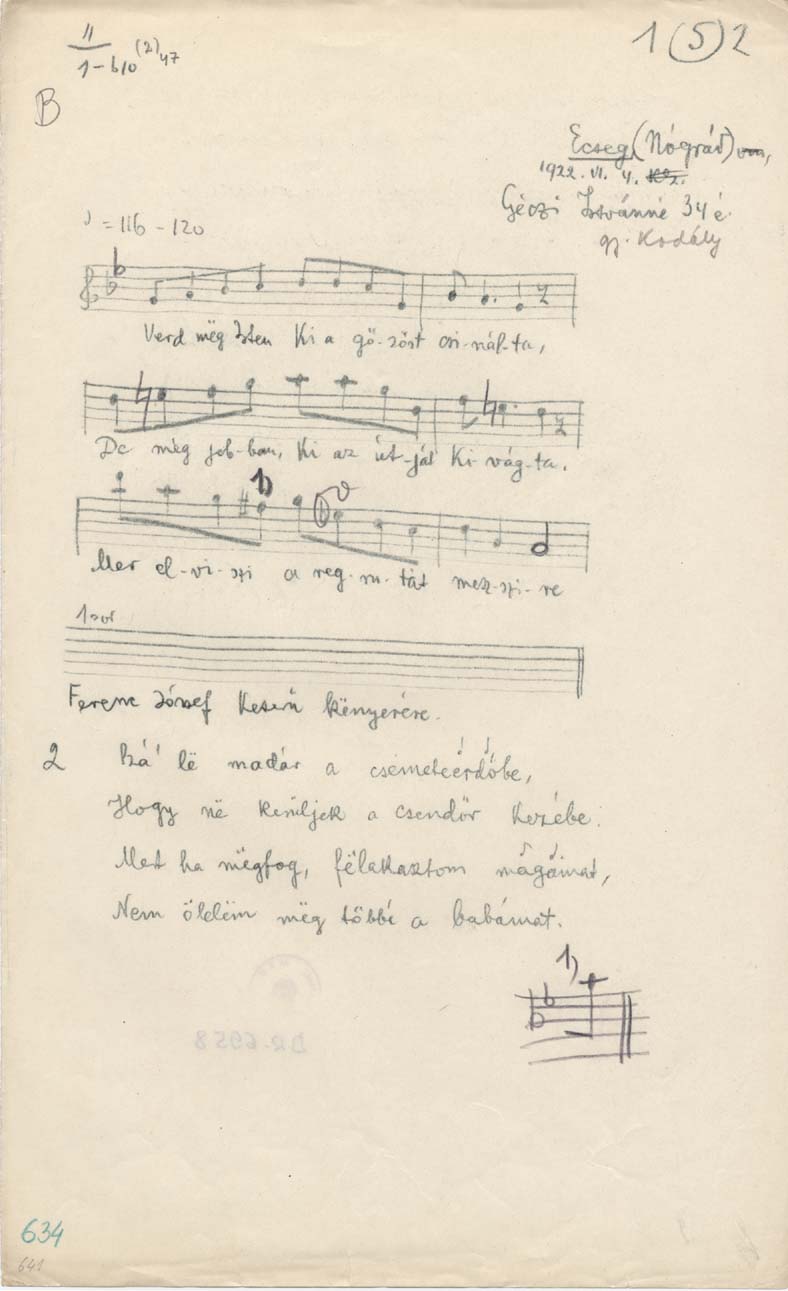 II
1-b10 (2) 47
1 (5) 2
B
Ecseg (Nógrád) vm,
1922. VI. 4.
Géczi Istvánné 34 é.
gy. Kodály
♩ = 116 - 120
Verd mëg Isten Ki a gő-zöst csi-nál-ta,
De mëg job-ban, Ki az út-ját Ki-vág-ta.
1)
Mer el-vi-szi a reg-ru-tát mesz-szi-re
1 sor
Ferenc József keserű kënyerére.
2 Szá' lë madár a csëmeteërdőbe,
Hogy në kerűljek a csendőr kezébe.
Mert ha mëgfog, fëlakasztom magamat,
Nem ölelëm mëg többé a babámat.
1)
DR. 6958
634
641